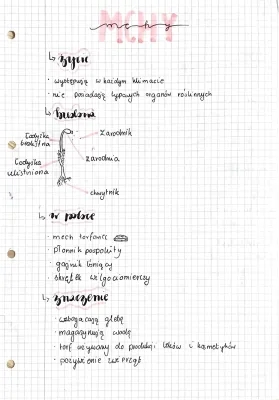 MCHY
mchy
↳ życie
· występują w każdym klimacie
· nie posiadają typowych organów roślinnych
↳ budowa
Łodyżka bezlistna
zarodnik
zarodnia
Łodyżka ulistniona
chwytnik
↳ w polsce
· mech torfowc
· płonnik pospolity
· gajnik lśniący
· skrętek wilgociomierczy
↳ znaczenie
· wzbogacają glebę
· magazynują wodę
· torf używany do produkcji leków i kosmetyków
· pożywienie zwierząt